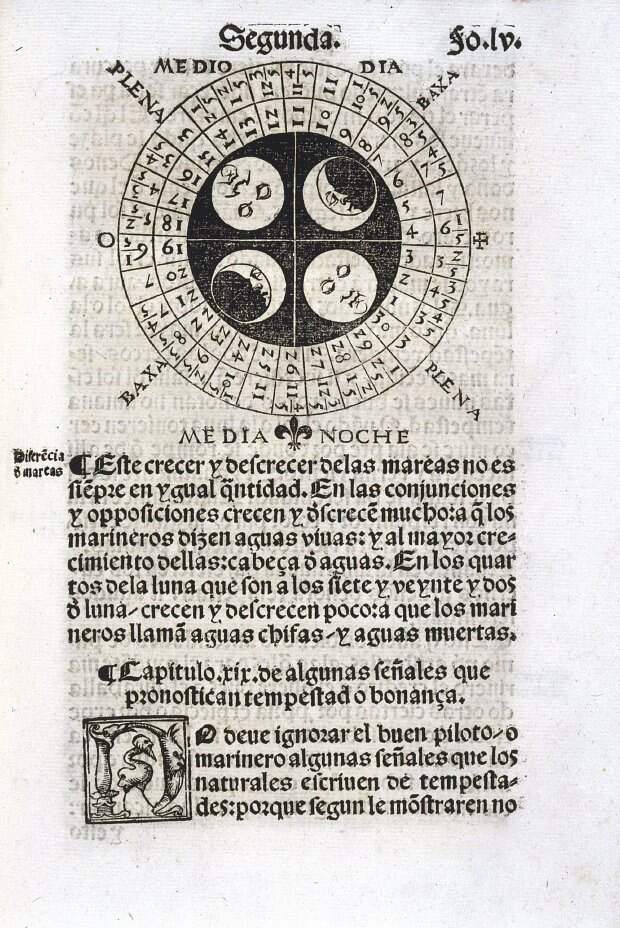 Segunda. Fo.lv.
MEDIO DIA
PLENA BAXA
BAXA PLENA
MEDIA NOCHE
Difrẽcia
d̃ mareas
¶Este crecer y descrecer delas mareas no es
siẽpre en ygual q̃ntidad. En las conjunciones
y opposiciones crecen y d̃screcẽ mucho: a q̃ los
marineros dizen aguas viuas: y al mayor cre-
cimiento dellas: cabeça d̃ aguas. En los quar
tos dela luna que son a los siete y veynte y dos
d̃ luna/ crecen y descrecen poco: a que los mari
neros llamã aguas chifas/ y aguas muertas.
¶Capitulo.xix. de algunas señales que
pronostican tempestad o bonança.
NO deue ignorar el buen piloto/ o
marinero algunas señales que los
naturales escriuen de tempesta-
des: porque segun le mõstraren no